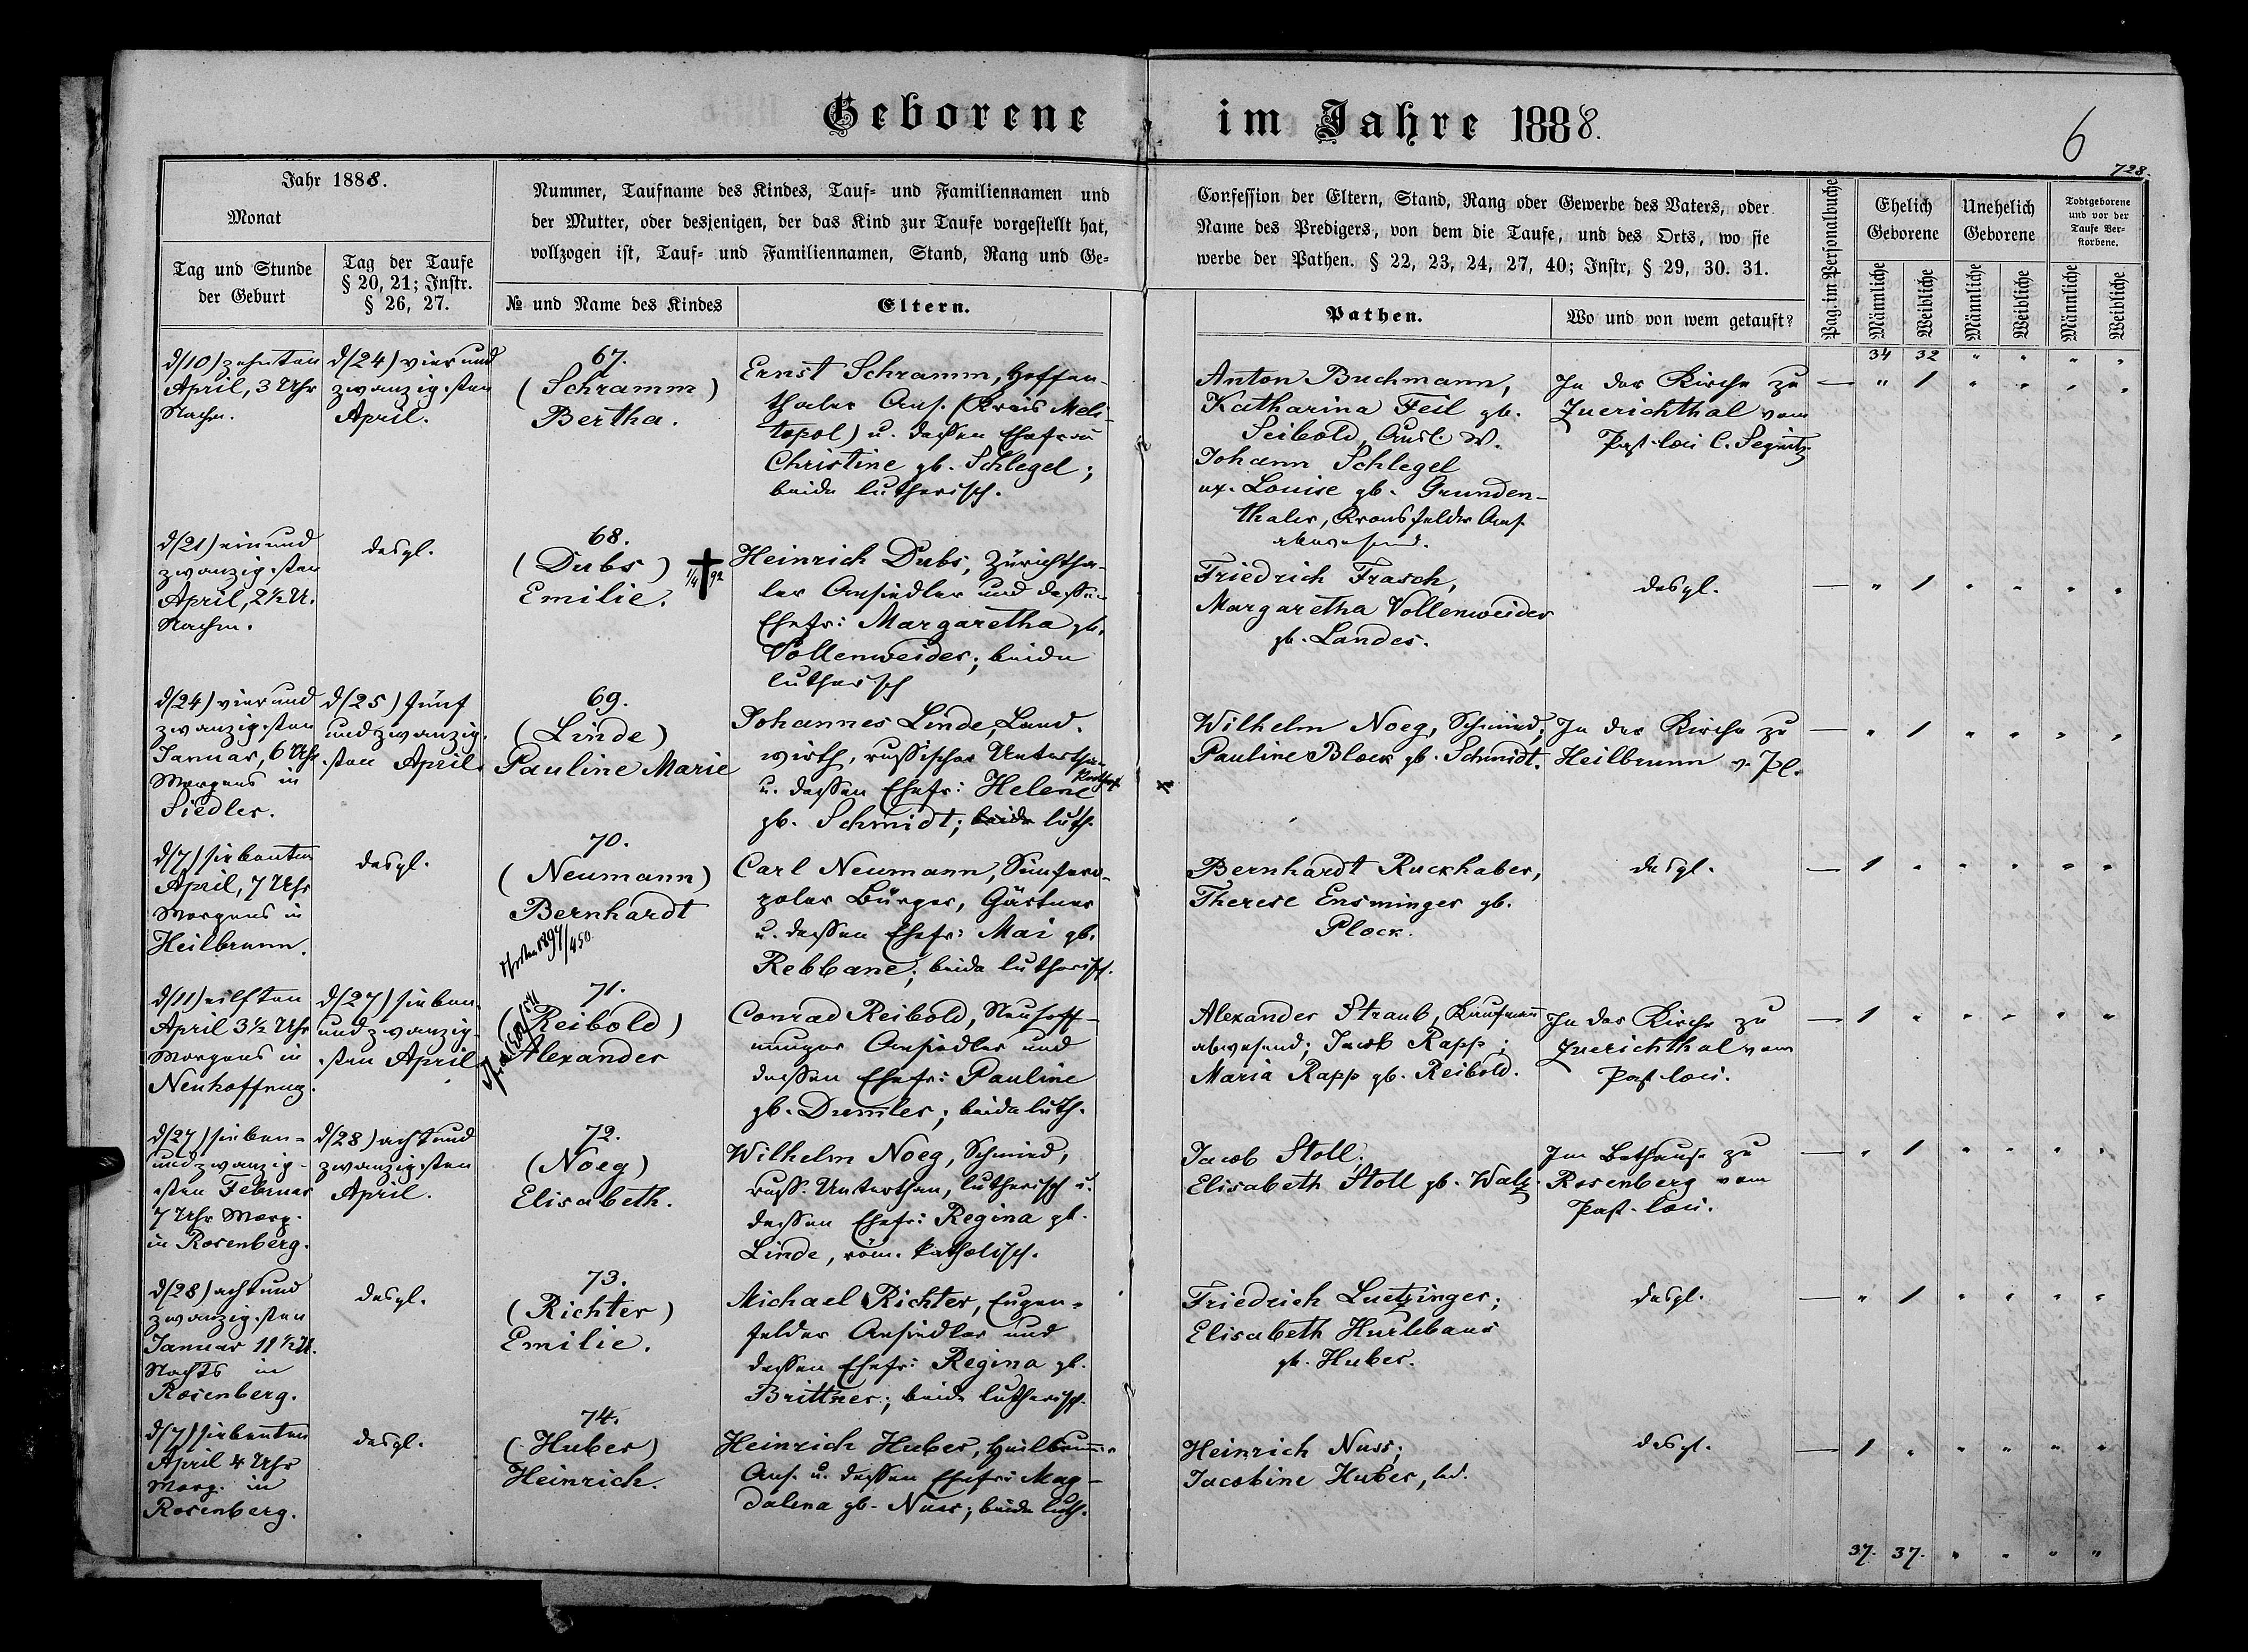 Geborene im Jahre 1888.
6
728.
Jahr 1888.
Monat
Tag und Stunde
der Geburt
Tag der Taufe
§ 20, 21; Instr.
§ 26, 27.
Nummer, Taufname des Kindes, Tauf- und Familiennamen und
der Mutter, oder desjenigen, der das Kind zur Taufe vorgestellt hat,
vollzogen ist, Tauf- und Familiennamen, Stand, Rang und Ge-
№ und Name des Kindes
Eltern.
Confession der Eltern, Stand, Rang oder Gewerbe des Vaters, oder
Name des Predigers, von dem die Taufe, und des Orts, wo sie
werbe der Pathen. § 22, 23, 24, 27, 40; Instr. § 29, 30. 31.
Pathen.
Wo und von wem getauft?
Pag. im Personalbuche
Ehelich
Geborene
Unehelich
Geborene
Todtgeborene
und vor der
Taufe Ver-
storbene.
Männliche
Weibliche
Männliche
Weibliche
Männliche
Weibliche
34 32 " " " "
d/10) zehnten
April, 3 Uhr
Nachm.
d/24) vier und
zwanzigsten
April.
67.
(Schramm)
Bertha.
Ernst Schramm, Hoffen-
thaler Ans. (Kreis Meli-
topol) u. dessen Ehefrau
Christine gb. Schlegel;
beide lutherisch.
Anton Buchmann,
Katharina Feil gb.
Seibold, Ausl. W.
Johann Schlegel
ux. Louise gb. Grunden-
thaler, Kronsfelder Ans.
abwesend.
In der Kirche zu
Zuerichthal vom
Past. loci C. Seginitz.
— " 1 " " " "
d/21) ein und
zwanzigsten
April, 2½ U.
Nachm.
desgl.
68.
(Dubs)
Emilie.
✝ 1/4 92
Heinrich Dubs, Zürichtha-
ler Ansiedler und dessen
Ehefr: Margaretha gb.
Vollenweider; beide
lutherisch
Friedrich Frasch,
Margaretha Vollenweider
gb. Landes.
desgl.
— " 1 " " " "
d/24) vier und
zwanzigsten
Januar, 6 Uhr
Morgens in
Siedler.
d/25) fünf
und zwanzig-
sten April.
69.
(Linde)
Pauline Marie
Johannes Linde, Land-
wirth, russischer Unterthan
u. dessen Ehefr: Helene
gb. Schmidt; beide luth.
Wilhelm Noeg, Schmied;
Pauline Block gb. Schmidt.
In der Kirche zu
Heilbrunn v. Pl.
— " 1 " " " "
d/7) siebenten
April, 7 Uhr
Morgens in
Heilbrunn.
desgl.
70.
(Neumann)
Bernhardt
Carl Neumann, Simfero-
poler Bürger, Gärtner
u. dessen Ehefr: Mai gb.
Rebbane; beide lutherisch.
Bernhardt Ruckhaber,
Therese Ensminger gb.
Plock.
desgl.
— 1 " " " " "
d/11) eilften
April 3½ Uhr
Morgens in
Neuhoffnug.
d/27) sieben-
und zwanzig-
sten April
71.
(Reibold)
Alexander
Conrad Reibold, Neuhoff-
nunger Ansiedler und
dessen Ehefr: Pauline
gb. Dumler; beide luth.
Alexander Straub, Kaufmann
abwesend; Jacob Rapp;
Maria Rapp gb. Reibold.
In der Kirche zu
Zuerichthal vom
Past. loci.
— 1 " " " " "
d/27) sieben-
und zwanzig-
sten Februar
7 Uhr Morg.
in Rosenberg.
d/28) acht und
zwanzigsten
April.
72.
(Noeg)
Elisabeth.
Wilhelm Noeg, Schmied,
russ. Unterthan, lutherisch u.
dessen Ehefr: Regina gb.
Linde, röm. katholisch.
Jacob Stoll;
Elisabeth Stoll gb. Walz.
Im Bethause zu
Rosenberg vom
Past. loci.
— " 1 " " " "
d/28) acht und
zwanzigsten
Januar 11½ U.
Nachts in
Rosenberg.
desgl.
73.
(Richter)
Emilie.
Michael Richter, Eugen-
felder Ansiedler und
dessen Ehefr: Regina gb.
Brittner; beide lutherisch.
Friedrich Luetzinger;
Elisabeth Hurlebaus
gb. Huber.
desgl.
— " 1 " " " "
d/7) siebenten
April 4 Uhr
Morg. in
Rosenberg.
desgl.
74.
(Huber)
Heinrich.
Heinrich Huber, Heilbrunn.
Ans. u. dessen Ehefr: Mag-
dalena gb. Nuss; beide luth.
Heinrich Nuss;
Jacobine Huber, led.
desgl.
— 1 " " " " "
37. 37. " " " "